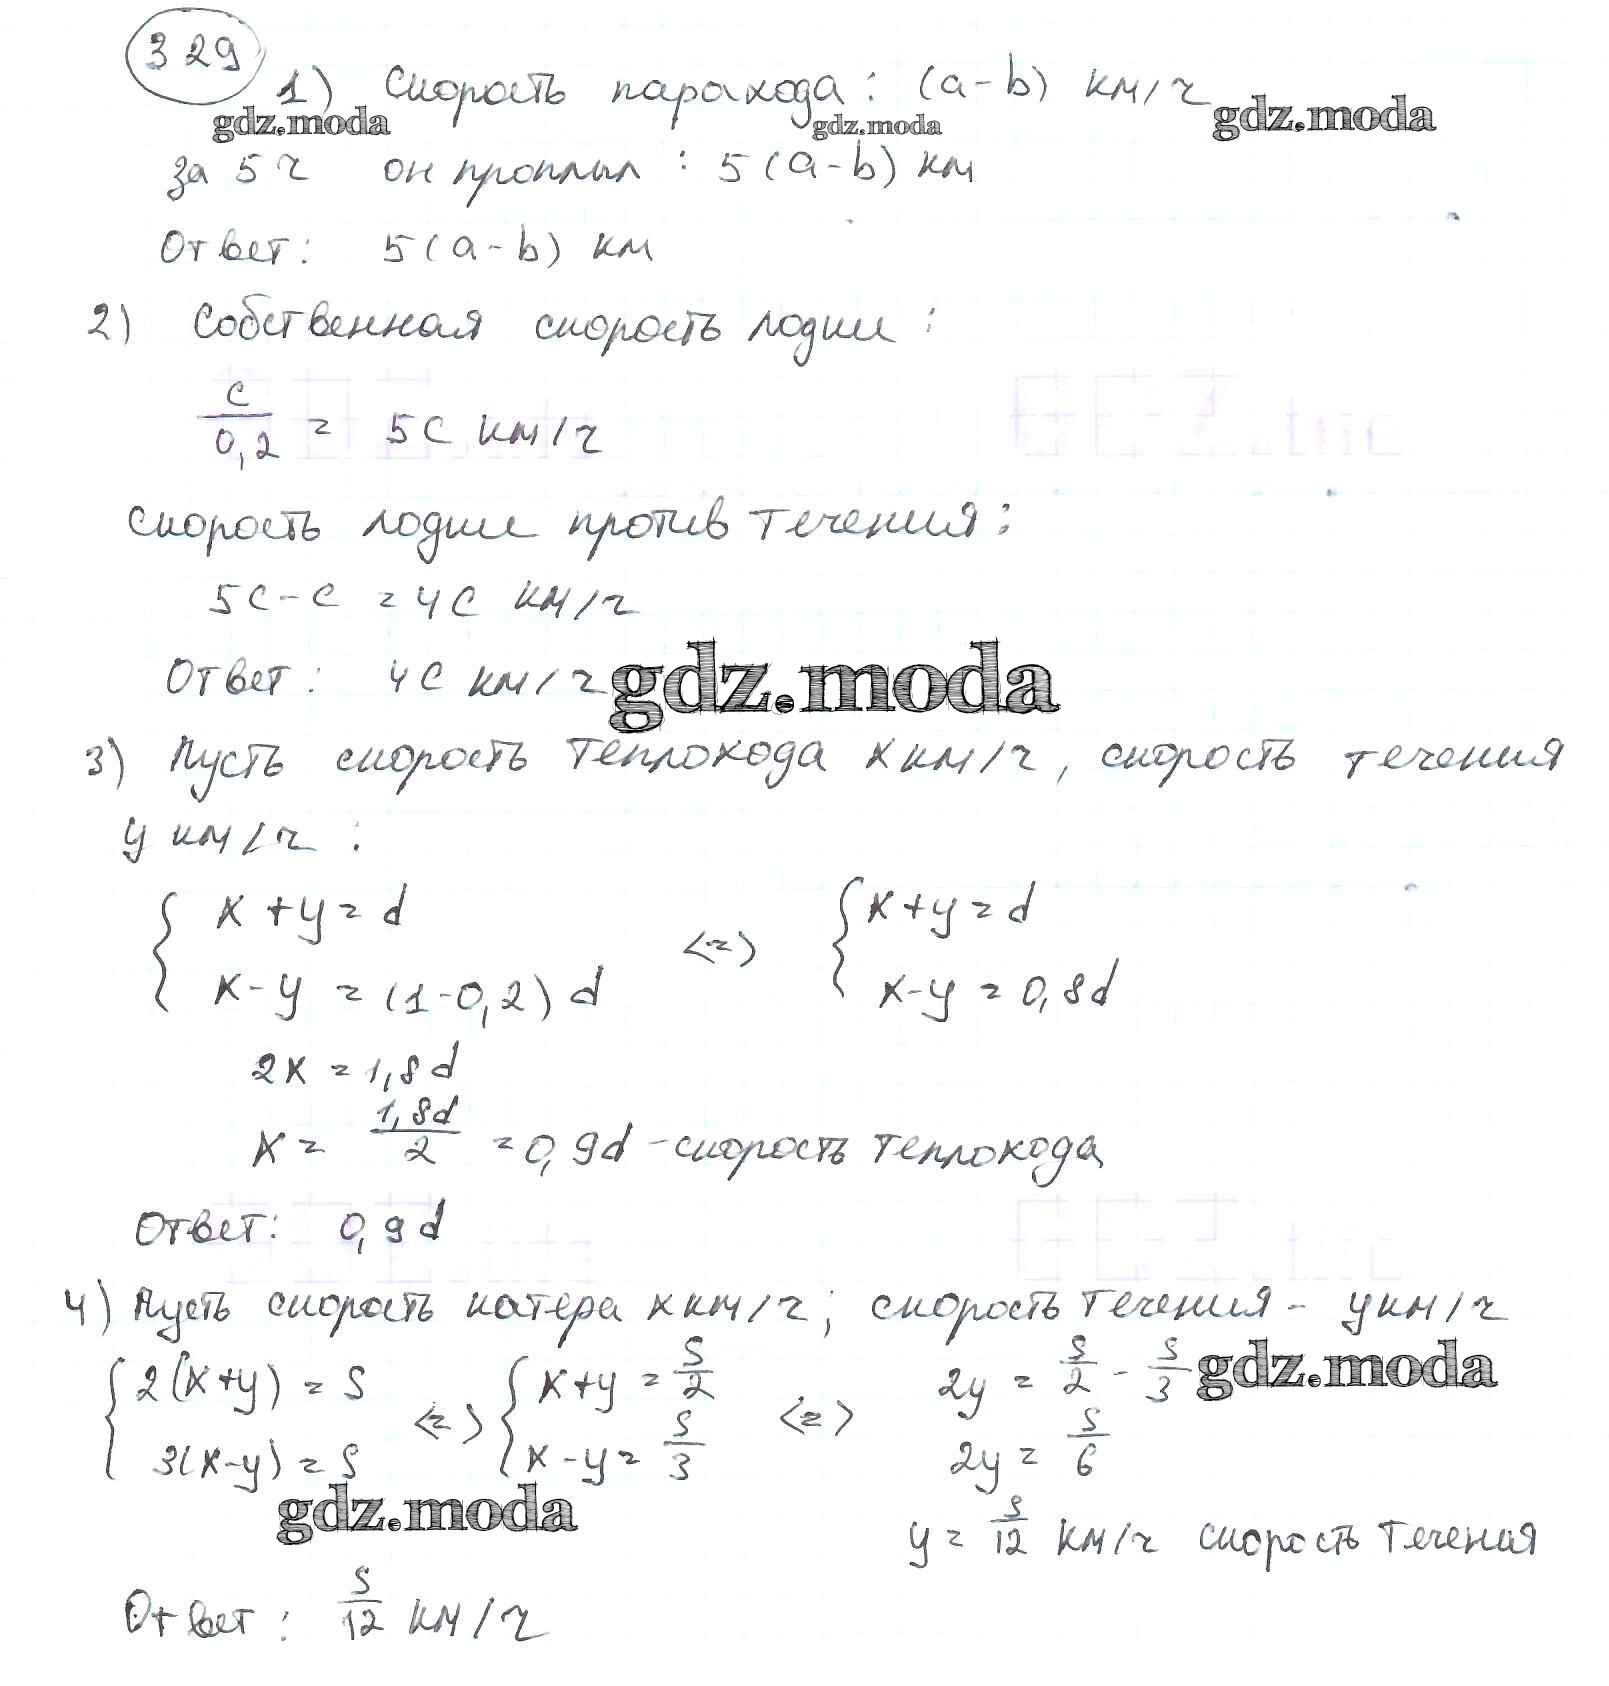 329
1) Скорость парохода: (a-b) км/ч
gdz.moda gdz.moda gdz.moda
за 5ч он проплыл: 5(a-b) км
Ответ: 5(a-b) км
2) Собственная скорость лодки:
c/0,2 = 5c км/ч
скорость лодки против течения:
5c-c = 4c км/ч
Ответ: 4c км/ч gdz.moda
3) Пусть скорость теплохода x км/ч, скорость течения
y км/ч:
{ x+y=d <=> { x+y=d
x-y=(1-0,2)d x-y=0,8d
2x=1,8d
x= 1,8d/2 =0,9d -скорость теплохода
Ответ: 0,9d
4) Пусть скорость катера x км/ч; скорость течения - y км/ч
{ 2(x+y)=S <=> { x+y=S/2 <=> 2y=S/2-S/3 gdz.moda
3(x-y)=S x-y=S/3 2y=S/6
gdz.moda
y=S/12 км/ч скорость течения
Ответ: S/12 км/ч